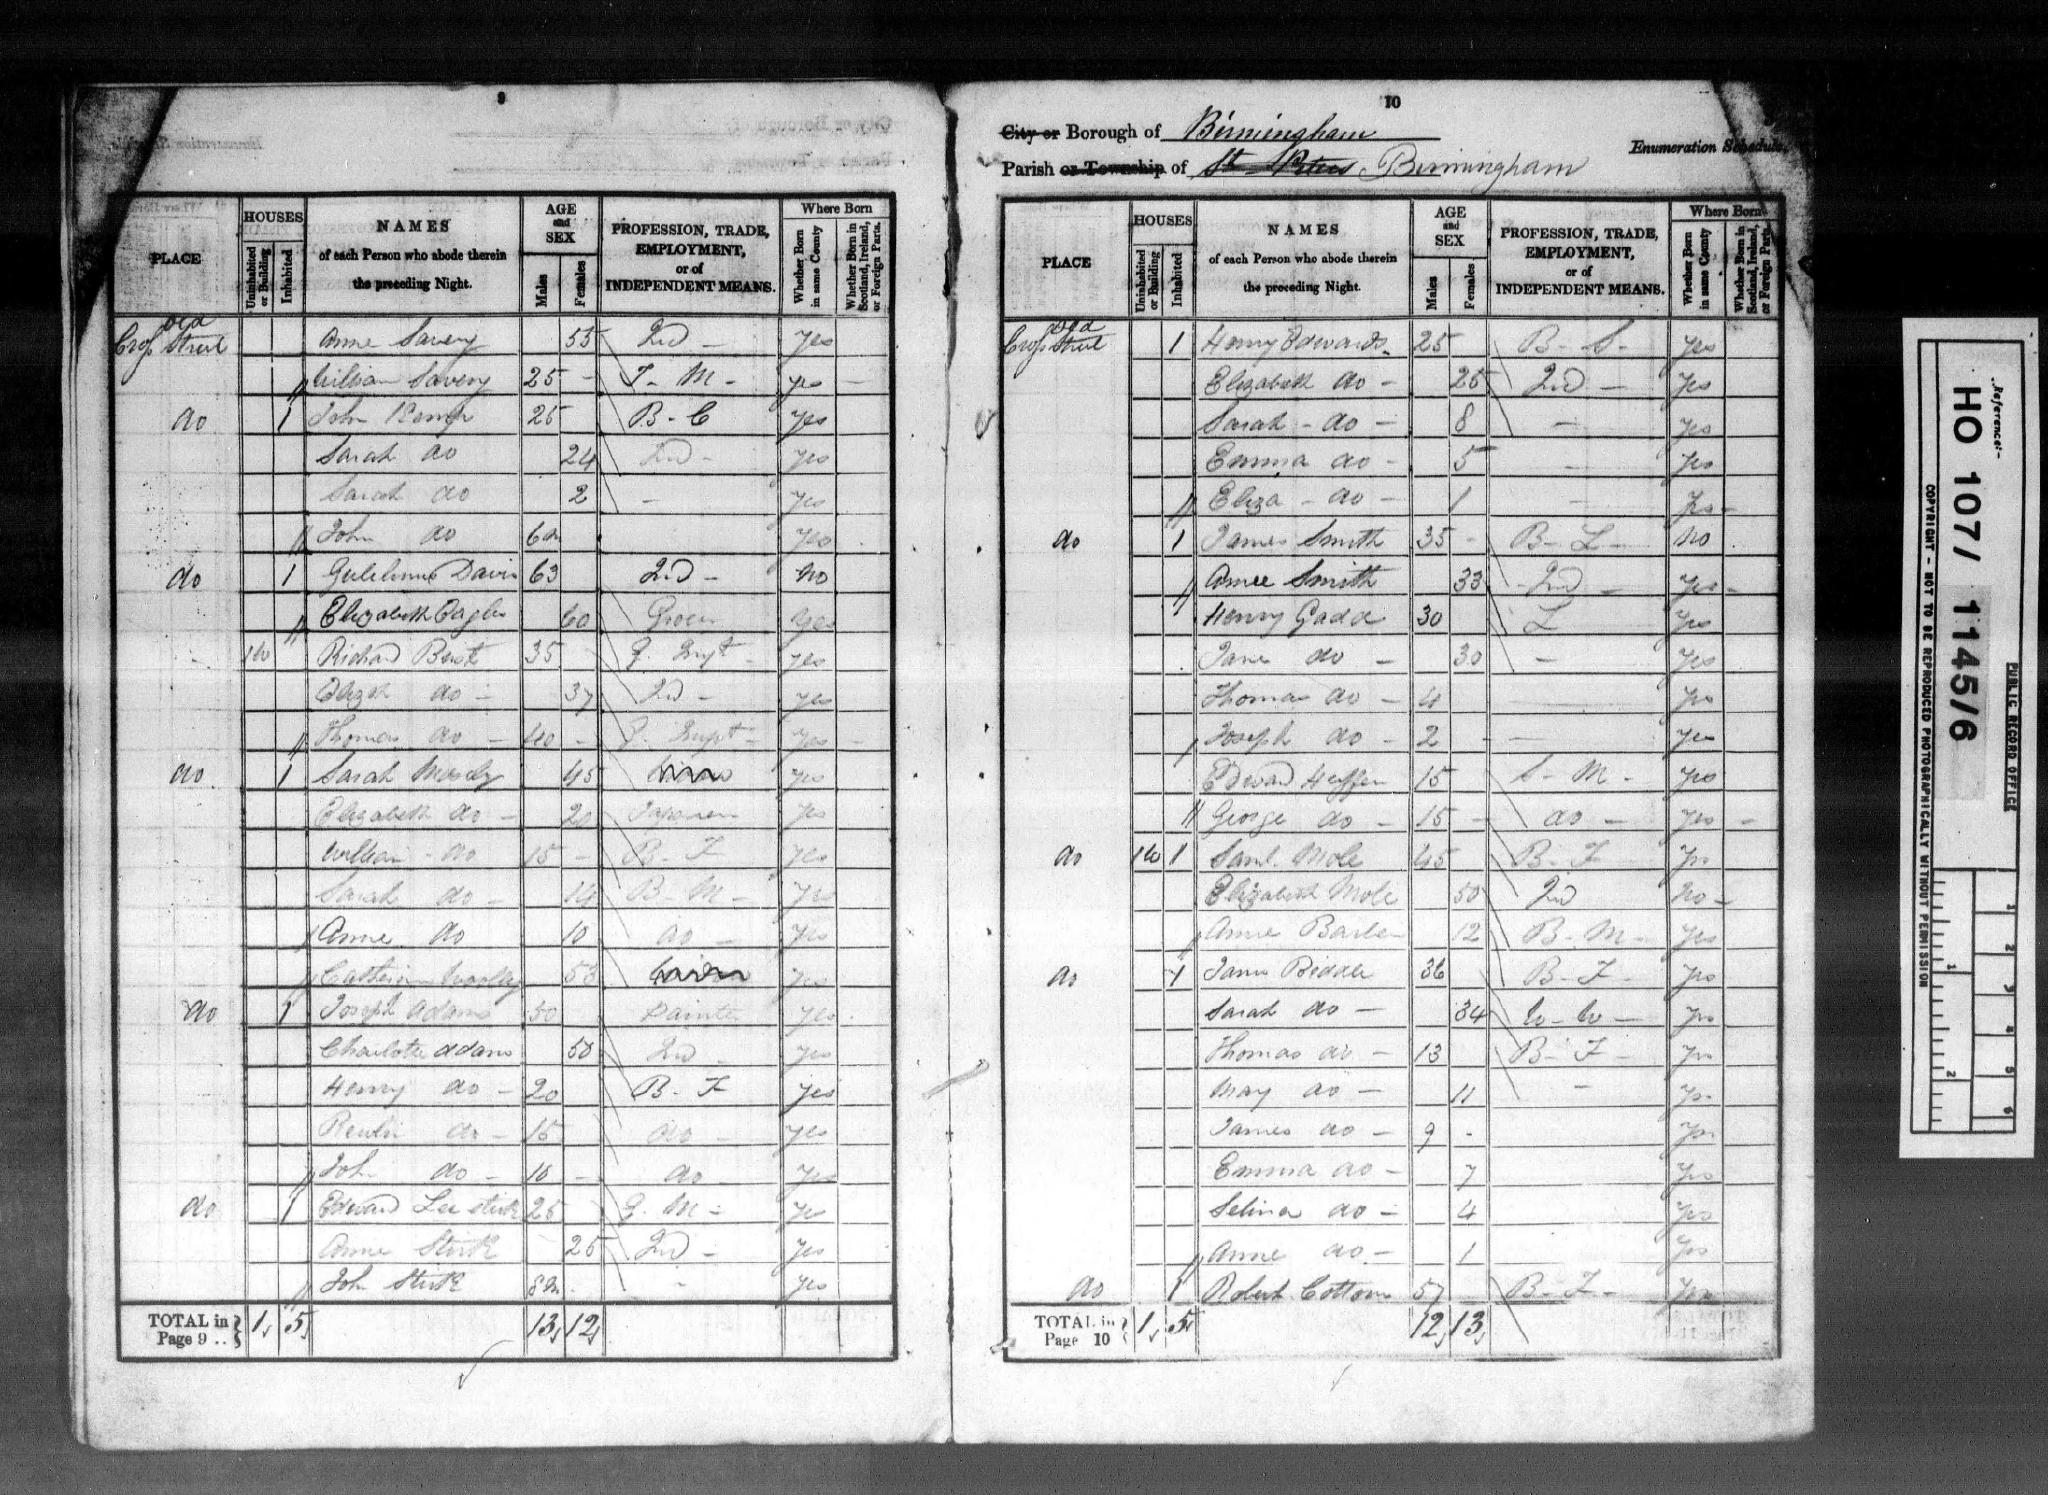 9
HOUSES
NAMES
AGE and SEX
PROFESSION, TRADE, EMPLOYMENT, or of INDEPENDENT MEANS.
Where Born
PLACE
Uninhabited or Building
Inhabited
of each Person who abode therein the preceding Night.
Males
Females
Whether Born in same County
Whether Born in Scotland, Ireland, or Foreign Parts.
Old
Cross Street Anne Savery 55 2nd - Yes
William Savery 25 - T - M - yes -
do 1 John Kemp 25 B - C yes
Sarah do 24 2nd - yes
Sarah do 2 - yes
John do 6m Yes
do 1 Davis 63 2nd - No
Elizabeth Eagles 60 Grocer Yes
Richard Best 35 yes
Elizth do - 37 2nd - yes
Thomas do - 40 - yes -
do 1 Sarah Mosely 45 yes
Elizabeth do - 20 Japaner yes
William - do 15 - B - F yes
Sarah do - 14 B - M - yes
Anne do 10 do - yes
Woolley 53 yes
do 1 Joseph Adams 50 Painter yes
Charlotte Adams 50 2nd - yes
Henry do - 20 B - F yes
do - 15 do - yes
John do - 10 - do - yes
do 1 Edward Lee Stirk 25 G. M - yes
Anne Stirk 25 2nd - yes
John Stirk 8m - yes
TOTAL in Page 9 .. } 1, 5, 13, 12,
10
City or Borough of Birmingham
Enumeration Schedule.
Parish or Township of St Peters Birmingham
HOUSES
NAMES
AGE and SEX
PROFESSION, TRADE, EMPLOYMENT, or of INDEPENDENT MEANS.
Where Born
PLACE
Uninhabited or Building
Inhabited
of each Person who abode therein the preceding Night.
Males
Females
Whether Born in same County
Whether Born in Scotland, Ireland, or Foreign Parts.
Old
Cross Street 1 Henry Edwards 25 B - S - yes
Elizabeth do - 25 2nd - yes
Sarah - do - 8 - yes
Emma do - 5 - yes
Eliza - do - 1 - yes -
do 1 James Smith 35 - B - L - No
Smith 33 - 2nd - yes -
Henry Gadd 30 L yes
Jane do - 30 - yes
Thomas do - 4 yes
Joseph do - 2 - yes
Edward 15 S - M - yes
George do - 15 - do - yes -
do 1 Saml. Mole 45 B - F - yes
Elizabeth Mole 50 2nd No -
Anne Barber 12 B - M - yes
do 1 James Biddle 36 B - F - yes
Sarah do - 34 W - W - yes
Thomas do - 13 B - F - yes
May do - 11 - yes
James do - 9 - yes
Emma do - 7 yes
Selina do - 4 yes
Anne do - 1 yes
do 1 Robert Cottom 57 - B - F - yes
TOTAL in Page 10 } 1, 5, 12, 13,
Reference:-
HO 107/1145/6
PUBLIC RECORD OFFICE
COPYRIGHT - NOT TO BE REPRODUCED PHOTOGRAPHICALLY WITHOUT PERMISSION
1 2
1 2 3 4 5 6